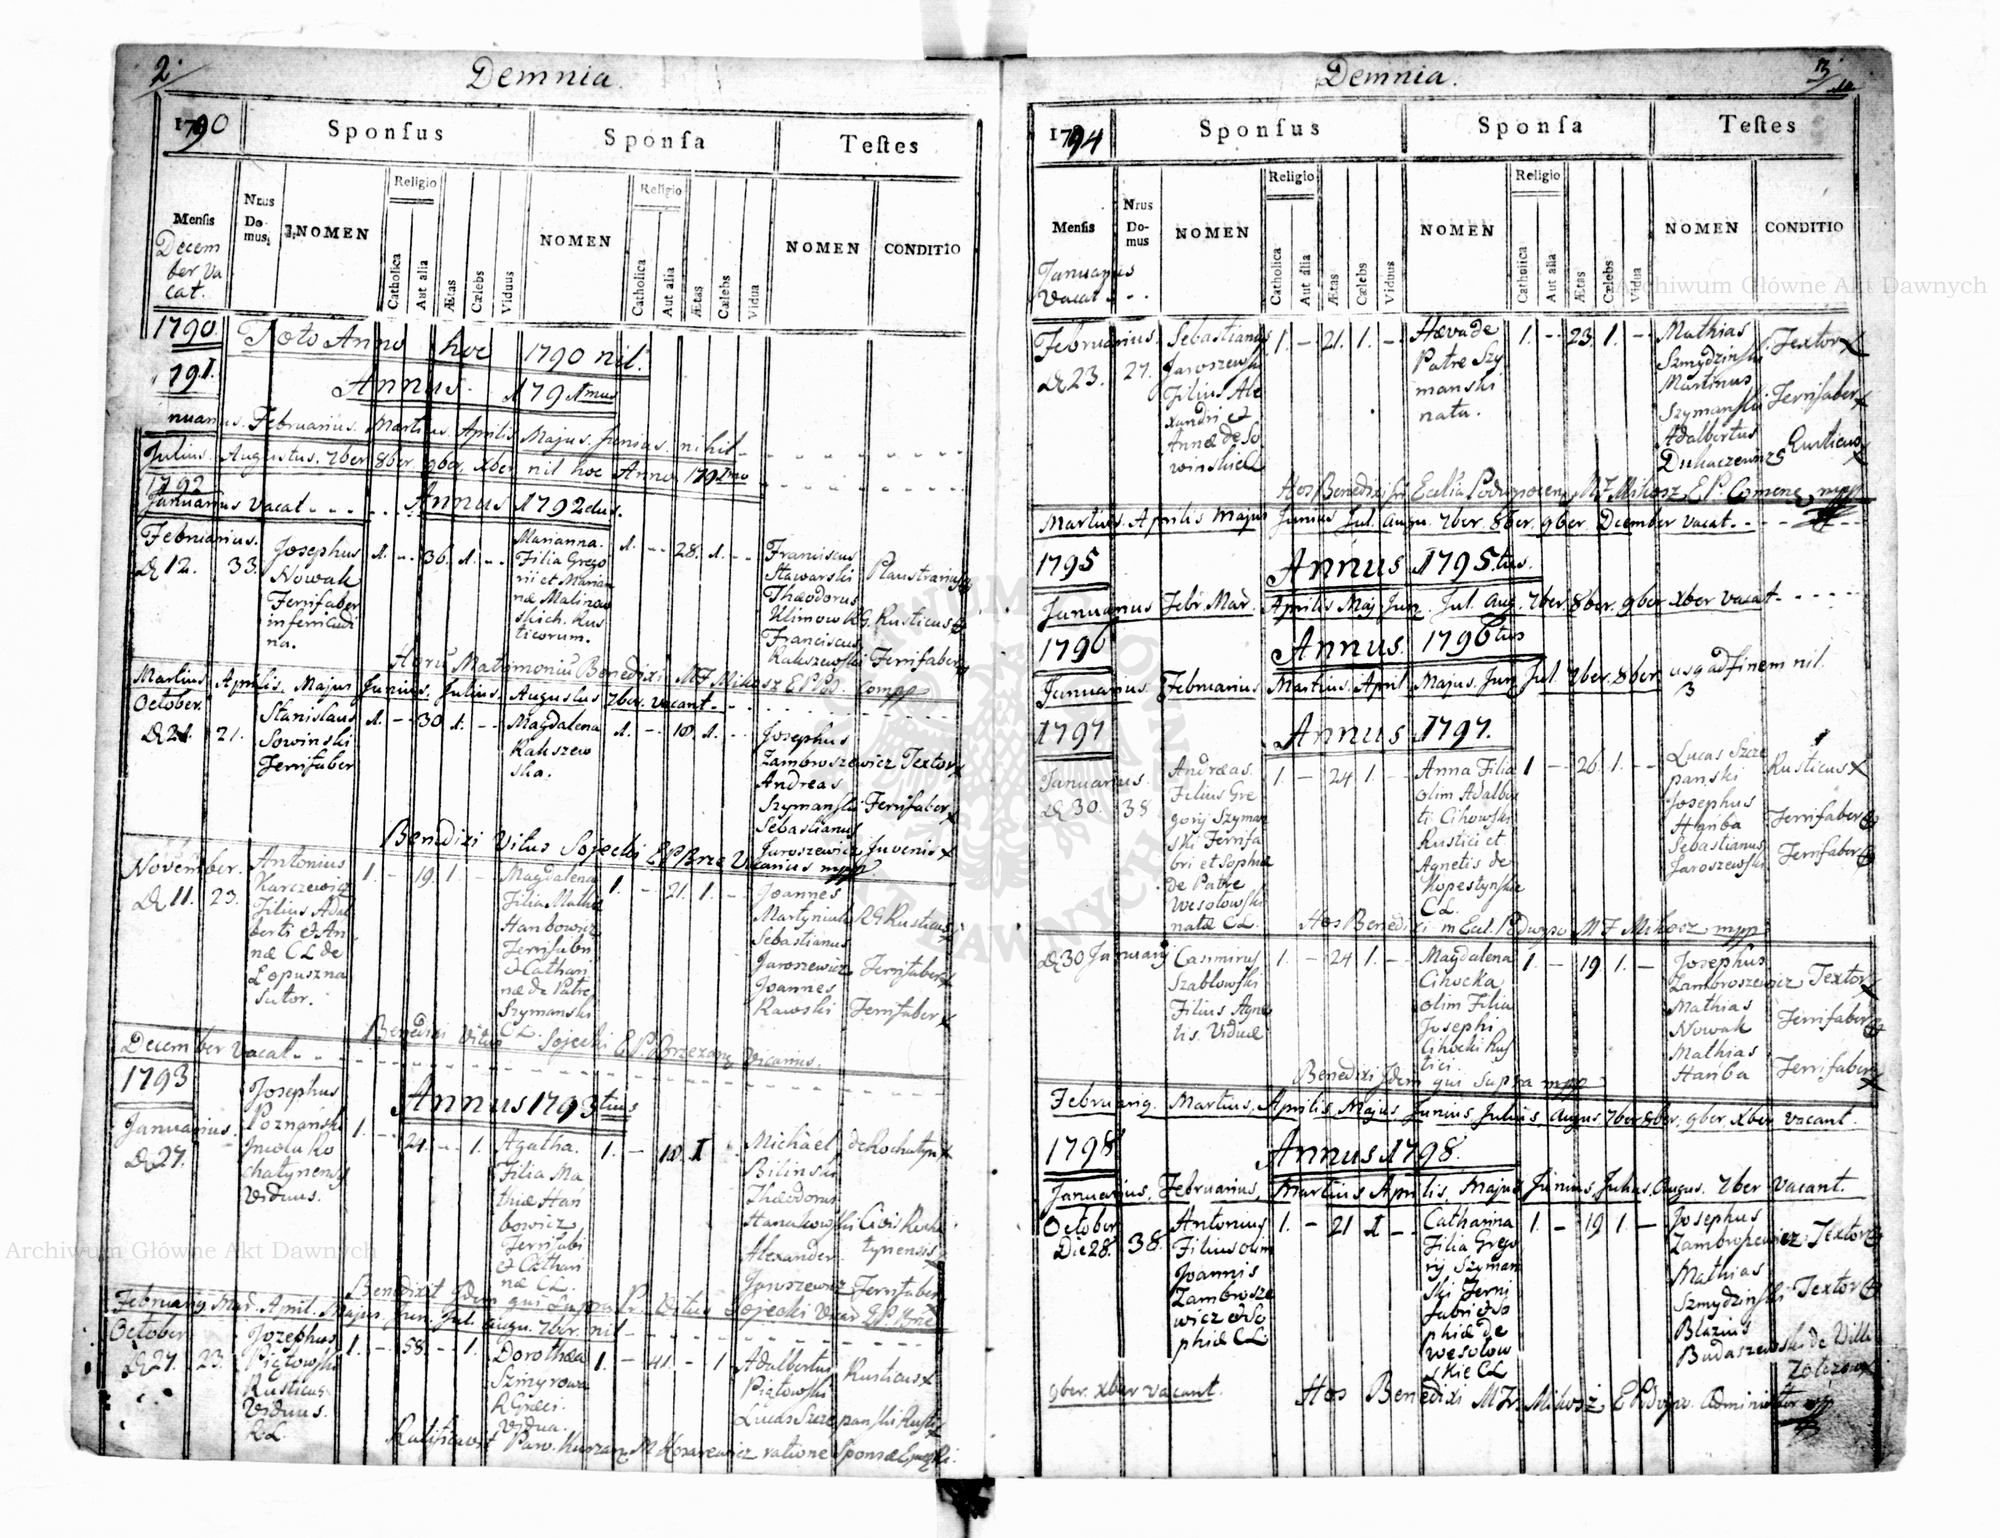 2.
Demnia.
1790
Sponſus
Sponſa
Teſtes
Menſis
Nrus Do-
mus.
NOMEN
Religio
Catholica
Aut alia
Ætas
Cælebs
Viduus
NOMEN
Religio
Catholica
Aut alia
Ætas
Cælebs
Vidua
NOMEN
CONDITIO
Decem
ber va
cat.
1790
Toto Anno hoc 1790 nil.
1791.
Annus. 1791mus
nuarius. Februarius. Martius. Aprilis. Majus. Junius. nihil
Julius. Augustus. 7ber 8ber. 9ber. Xber nil hoc Anno 1791mo
1792
Januarius vacat Annus 1792dus.
Februarius.
D 12. 33.
Josephus
Nowak
Ferrifaber
in ferricudi
na.
1. - 36. 1. -
Marianna.
Filia Grego
rii et Marian
næ Malinow
skich. Rus
ticorum.
1. - 28. 1. -
Franciscus
Stawarski Plaustrarius
Theodorus
Klimow RG. Rusticus
Franciscus
Rakszewski Ferrifaber
Horū Matrimoniū Benedixi MF Mikosz
Martius. Aprilis. Majus Junius. Julius. Augustus 7ber. vacant
October.
D 21. 21.
Stanislaus
Sowinski
Ferrifaber
1. - 30 1. -
Magdalena
Rakszew
ska.
1. - 18. 1. -
Josephus
Zambroszewicz Textor
Andreas
Szymanski Ferrifaber
Sebastianus
Jaroszewicz Juvenis
Benedixi Vitus Sojecki EP Brze Vicarius mpp
November.
D 11. 23.
Antonius
Karczewicz
Filius Adal
berti et An
næ CL de
Lopuszna
Sutor.
1. - 19. 1. -
Magdalena
Filia Mathiæ
Hanbowicz
Ferrifabri
et Cathari
næ de Patre
Szymanski
CL.
1. - 21. 1. -
Joannes
Martyniuk RG Rusticus
Sebastianus
Jaroszewicz Ferrifaber
Joannes
Rawski Ferrifaber
Benedixi Vitus Sojecki EP. Brzezanz Vicarius.
December vacat
1793
Annus 1793tius
Januarius.
D 27.
Josephus
Poznański
Incola Ro
hatynensis
Viduus.
1. - 24. - 1.
Agatha.
Filia Ma
thiæ Han
bowicz
Ferrifabri
et Cathari
næ CL.
1. - 18. 1
Michael de Rohatyn
Biliński
Theodorus
Hanakowski Civis Roha
tynensis
Alexander
Jaroszewicz Ferrifaber
Benedixit Idem qui supra Pr. Vitus Sojecki
Februariq Mar. April. Majus. Jun. Jul. Augu. 7ber. nil
October
D 27. 23.
Jozephus
Piątowski
Rusticus
Viduus.
RL
1. - 58. - 1.
Dorothea
Szmyrowa
RGræci.
Vidua.
1. - 41. - 1
Adalbertus
Piątowski Rusticus
Lucas Szczepanski Rusti
Ratificavit Paro. Kurzan M Kosarewicz ratione Sponsæ
3
Demnia.
1794
Sponſus
Sponſa
Teſtes
Menſis
Nrus
Do-
mus
NOMEN
Religio
Catholica
Aut alia
Ætas
Cælebs
Viduus
NOMEN
Religio
Catholica
Aut alia
Ætas
Cælebs
Vidua
NOMEN
CONDITIO
Januarius
Vacat
Februarius.
D 23. 27.
Sebastianus
Jaroszewski
Filius Ale
xandri et
Annæ de So
winskie
1. - 21. 1. -
Hæva de
Patre Szy
manski
nata.
1. - 23. 1. -
Mathias
Szmydzinski Textor
Martinus
Szymanski Ferrifaber
Adalbertus
Rusticus
Hos Benedixi MF Mikosz EP. Comend. mpp
Martius. Aprilis Majus Junius Jul. Augu. 7ber 8ber. 9ber. December vacat.
1795
Annus 1795.tus.
Januarius Febr. Mar. Aprilis Maj Jun. Jul. Aug. 7ber 8ber. 9ber Xber vacat
1796
Annus. 1796tus
Januarius Februarius Martius. April Majus. Jun Jul. 7ber. 8ber usq ad finem nil.
1797
Annus 1797.
Januarius.
D 30. 38
Andreas.
Filius Gre
gorij Szyman
ski Ferrifa
bri et Sophiæ
de Patre
Wesołowski
natæ CL.
1. - 24 1. -
Anna Filia
olim Adalber
ti Cihowski
Rustici et
Agnetis de
Kopestyńskie
CL.
1 - 26. 1. -
Lucas Szcze
panski Rusticus
Josephus
Hanba Ferrifaber
Sebastianus
Jaroszewski Ferrifaber
Hos Benedixi in Eccl. Podwyso MF Mikosz mpp
D 30 January
Casimirus
Szablowski
Filius Agne
tis. Viduæ
1. - 24 1. -
Magdalena
Cihocka
olim Filia
Josephi
Cihocki Rus
tici.
1. - 19 1. -
Josephus
Zambroszewicz Textor
Mathias
Nowak Ferrifaber
Mathias
Hańba Ferrifaber
Benedixi Idem qui supra mpp
Februariq. Martius. Aprilis. Majus Junius. Julius Augus. 7ber 8ber. 9ber. Xber. vacant.
1798
Annus 1798.
Januarius. Februarius. Martius Aprilis. Majus Junius. Julius. Augus. 7ber vacant.
October
Die 28. 38.
Antonius
Filius olim
Joannis
Zambrosze
wicz et So
phiæ CL.
1. - 21 1 -
Catharina
Filia Grego
rij Szyman
ski Ferri
fabri et So
phiæ de
Wesołow
skie CL
1. - 19 1. -
Josephus
Zambroszewicz Textor
Mathias
Szmydzinski Textor
Blazius
Budaszewski de Villa
9ber. Xber vacant.
Hos Benedixi MFr Mikosz EPodwyso. Administrator mpp
Archiwum Główne Akt Dawnych
Archiwum Główne Akt Dawnych
ARCHIWUM GŁÓWNE AKT DAWNYCH